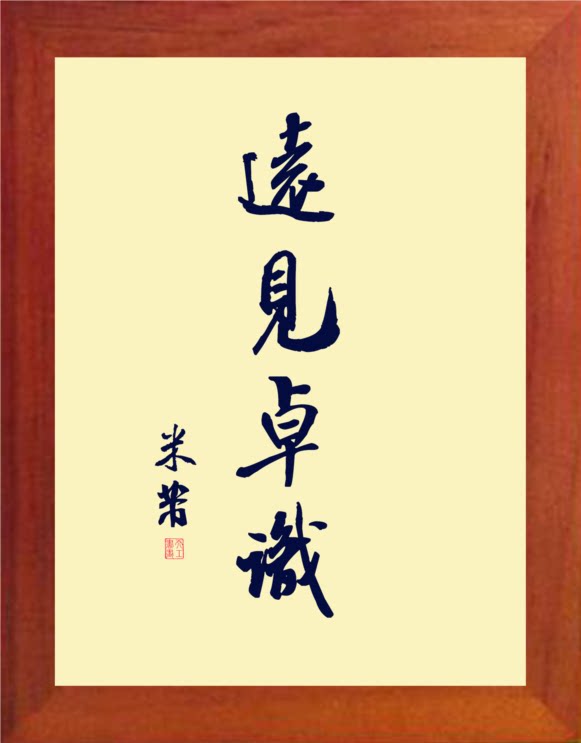 遠見卓識
米芾